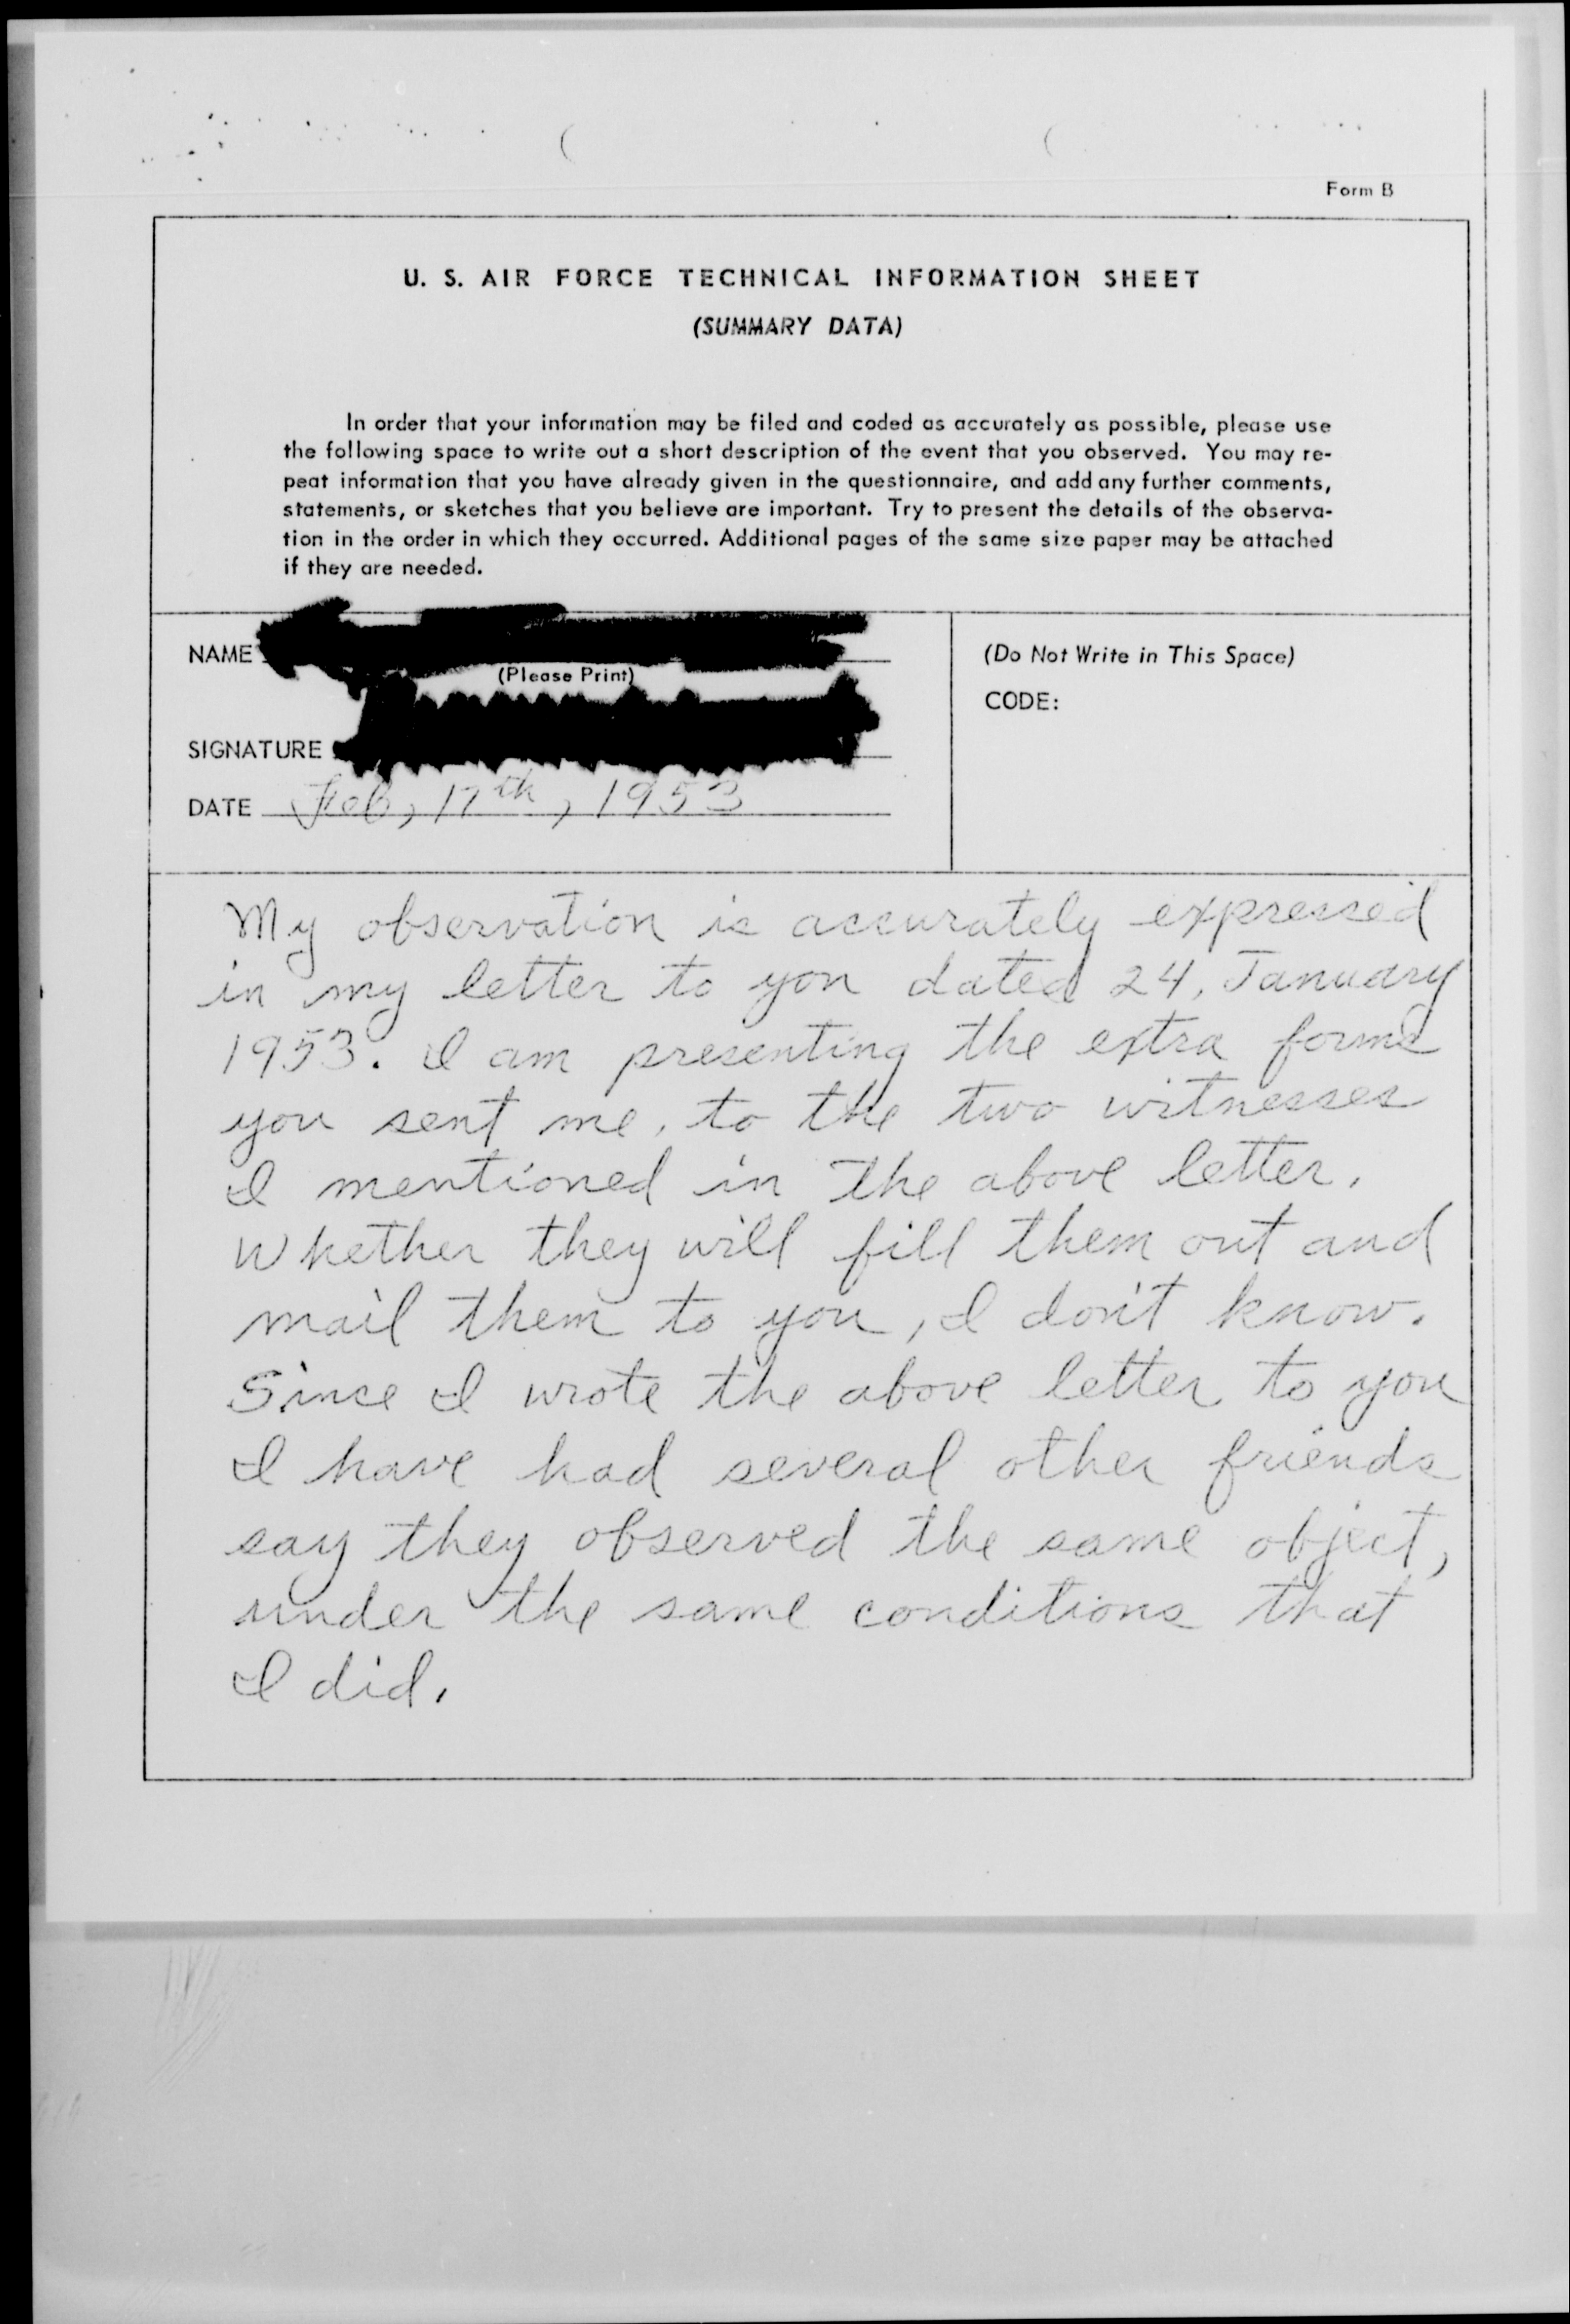 Form B
U. S. AIR FORCE TECHNICAL INFORMATION SHEET
(SUMMARY DATA)
In order that your information may be filed and coded as accurately as possible, please use
the following space to write out a short description of the event that you observed. You may re-
peat information that you have already given in the questionnaire, and add any further comments,
statements, or sketches that you believe are important. Try to present the details of the observa-
tion in the order in which they occurred. Additional pages of the same size paper may be attached
if they are needed.
NAME
(Please Print)
SIGNATURE
DATE Feb, 17th, 1953
(Do Not Write in This Space)
CODE:
My observation is accurately expressed
in my letter to you dated 24, January
1953. I am presenting the extra forms
you sent me, to the two witnesses
I mentioned in the above letter.
Whether they will fill them out and
mail them to you, I don't know.
Since I wrote the above letter to you
I have had several other friends
say they observed the same object,
under the same conditions that
I did.